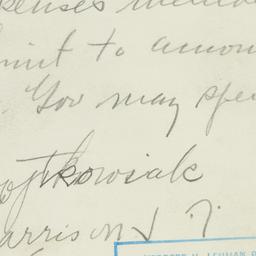 penses
mit to amou
You may spe
ojtkowiak
arrison N J
HERBERT H. LEHMAN